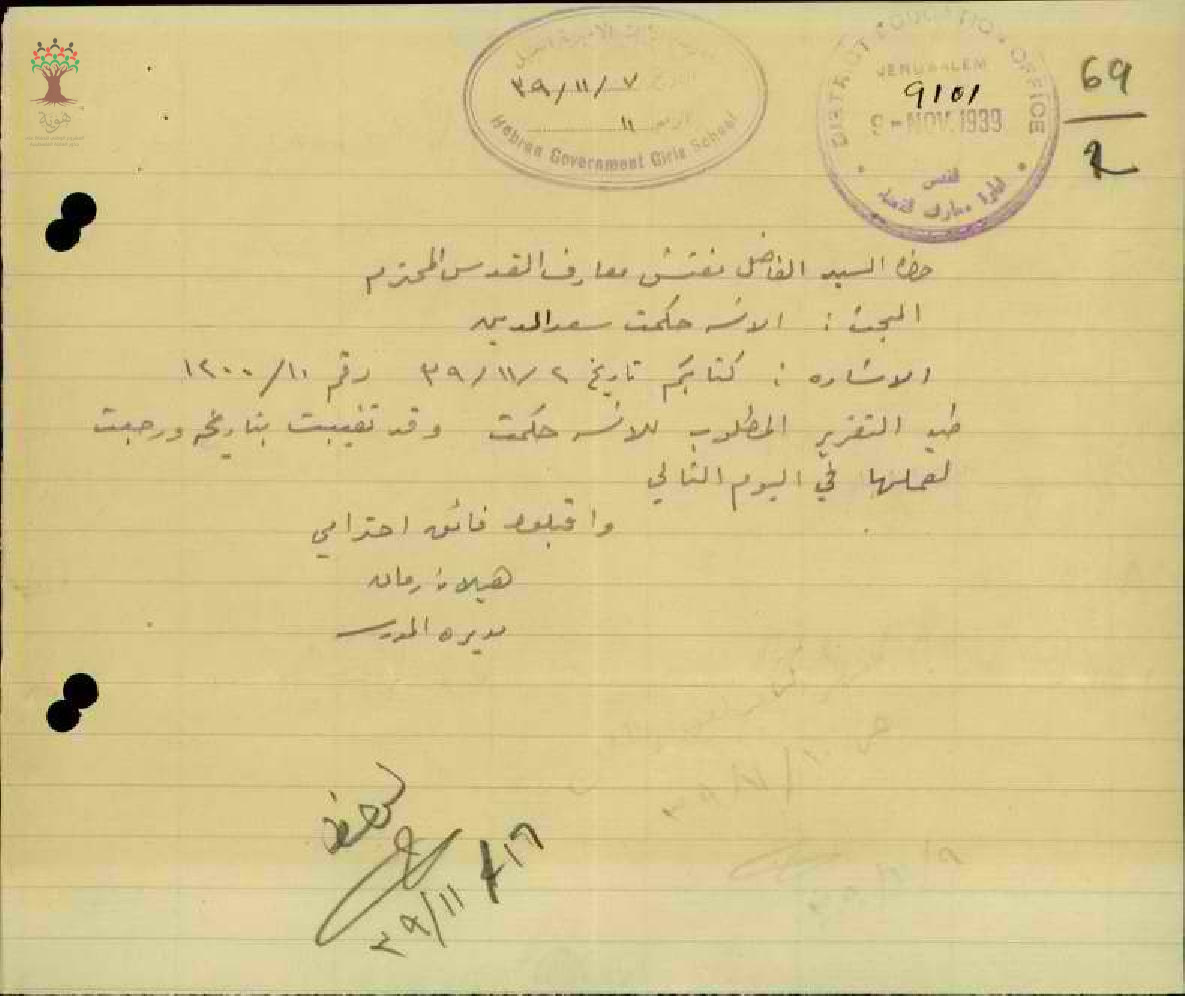 مدرسة البنات الاميرية الخليل
التاريخ ٣٩/١١/٧
الرقم ١١
Hebron Government Girls School
DISTRICT EDUCATION OFFICE
JERUSALEM
9101
9 - NOV. 1939
القدس
ادارة معارف لقضاء
69
2
هوية
حضرة السيد الفاضل مفتش معارف القدس المحترم
المبحث : الانسه حكمت سعدالدين
الاشاره : كتابكم تاريخ ٣٩/١١/٢ رقم ١٢٠٠/١٠
طيه التقرير المطلوب للانسه حكمت وقد تغيبت بتاريخه ورجعت
لعملها في اليوم التالي
واقبلوا فائق احترامي
هيلانة رمان
مديره المدرسه
تحفظ
٣٩/١١/١٦